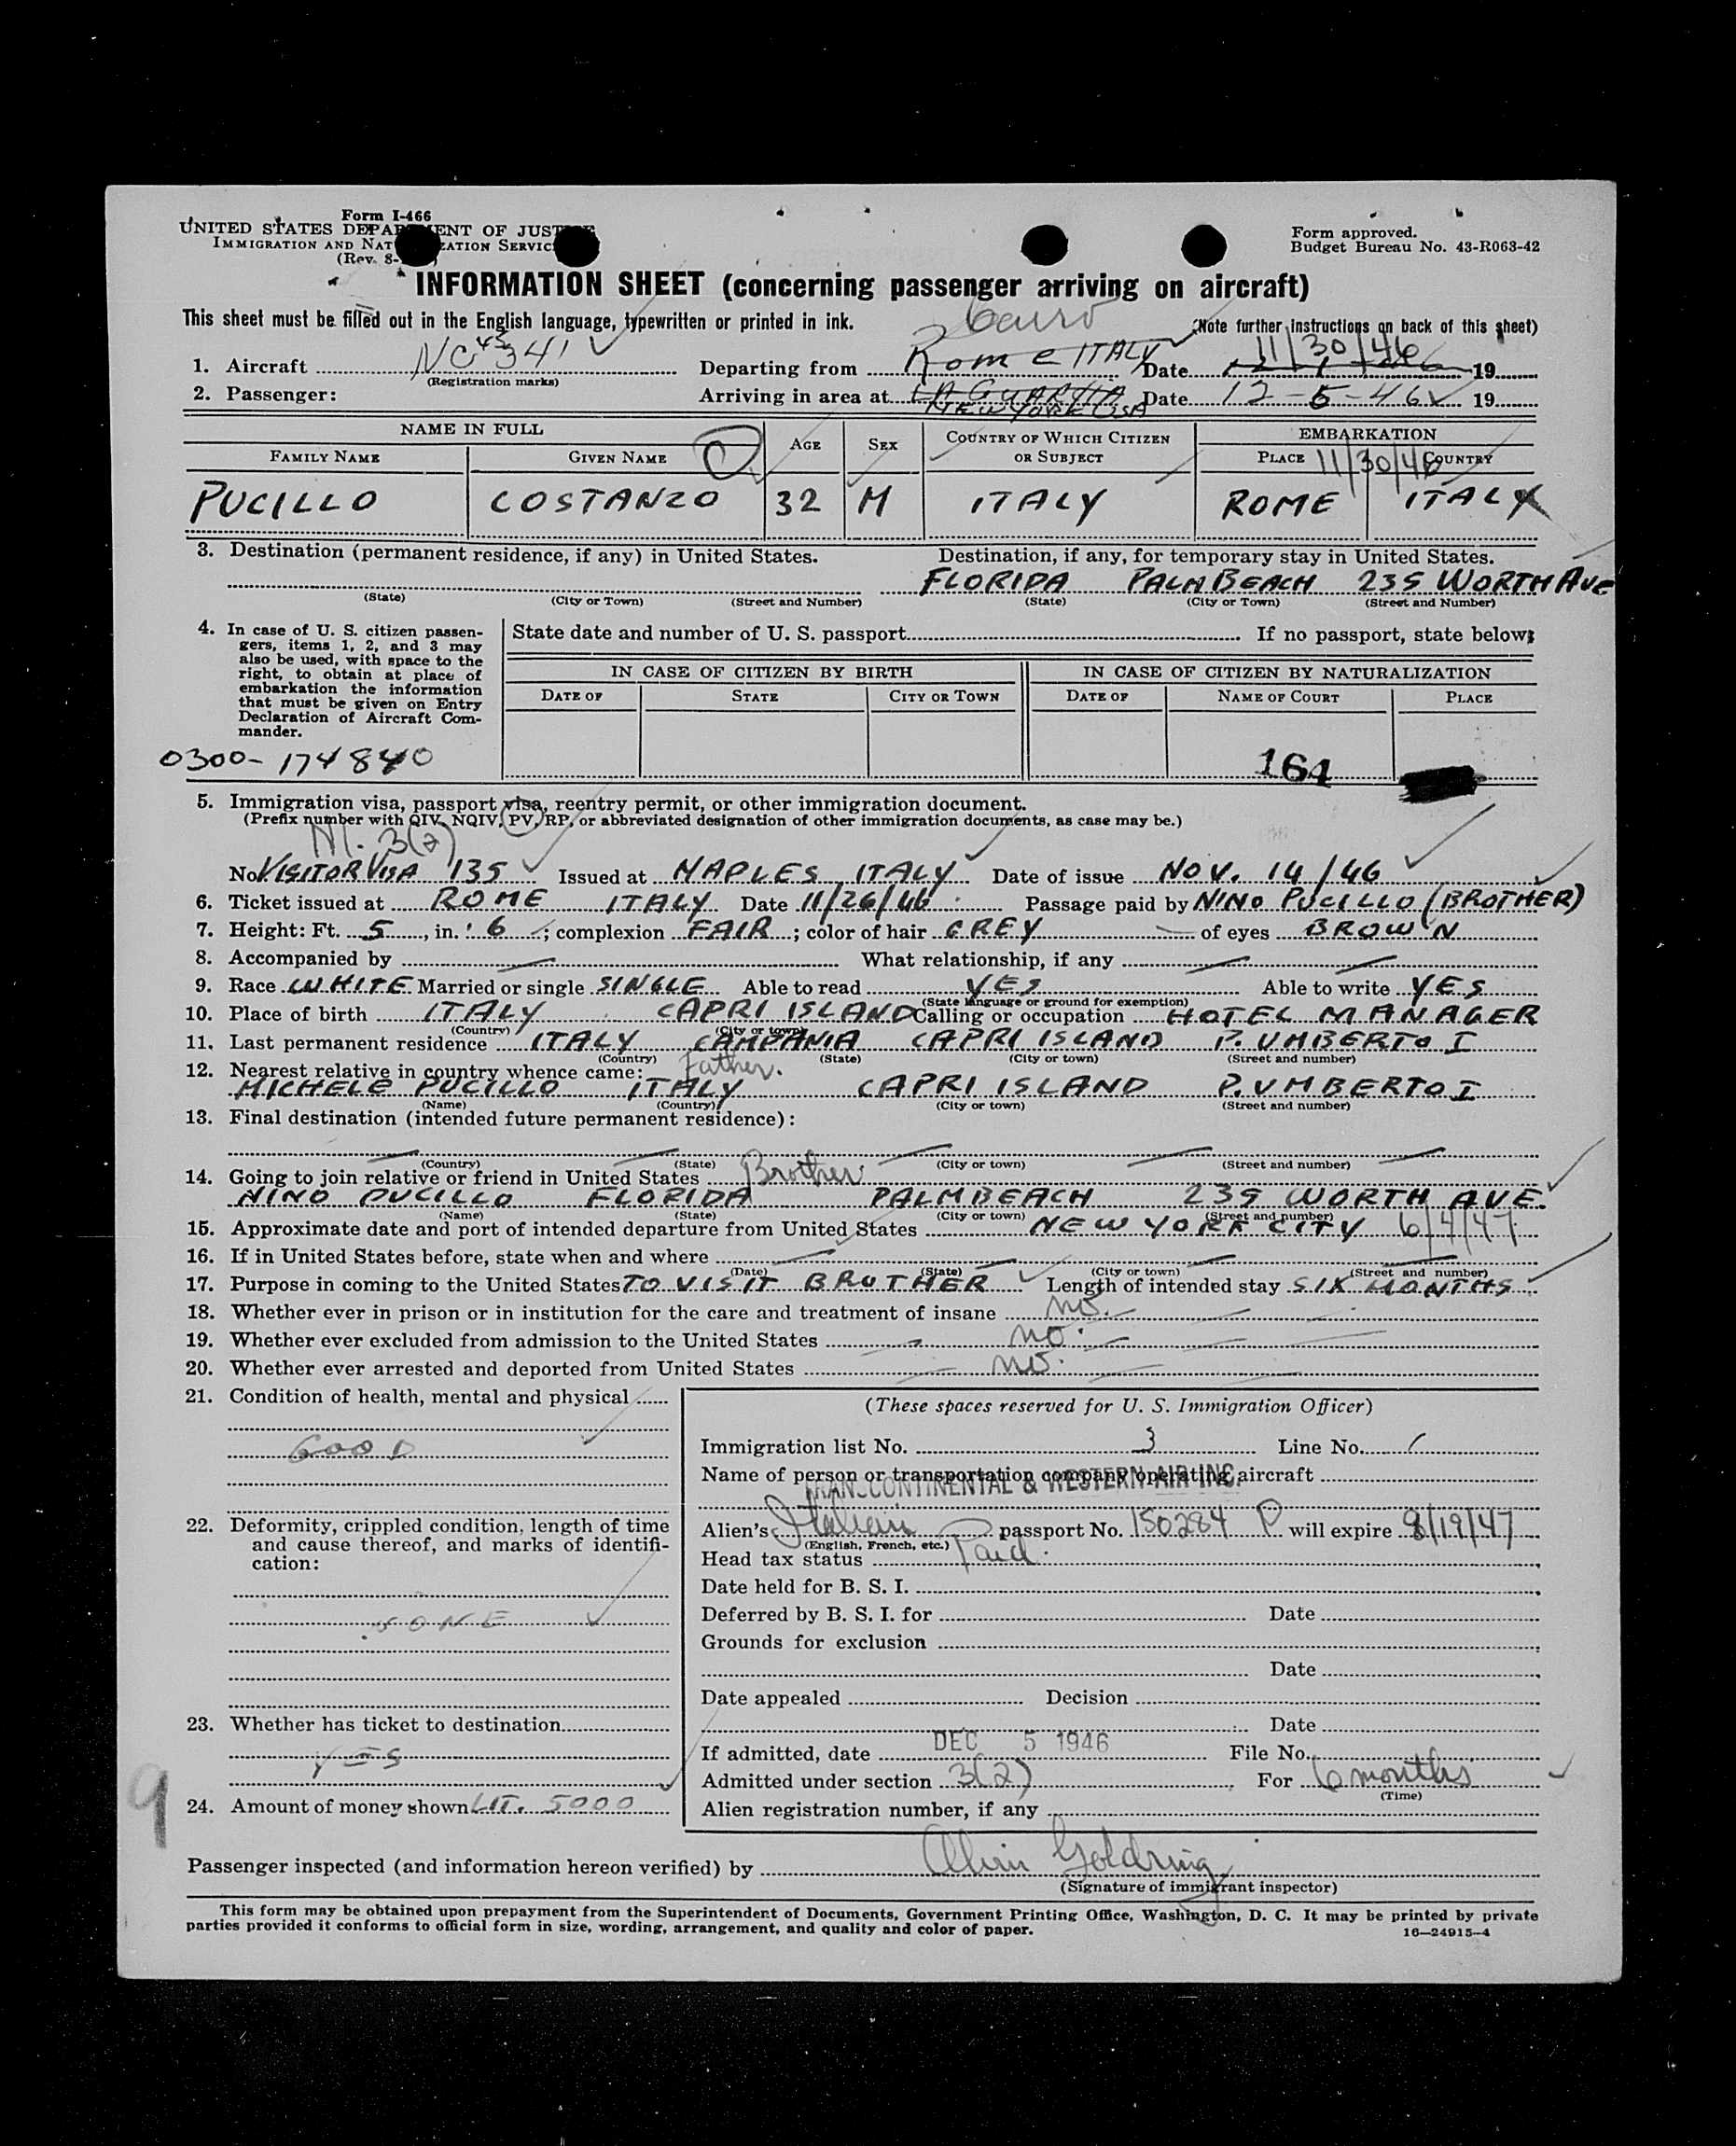 Form I-466
UNITED STATES DEPARTMENT OF JUSTICE
IMMIGRATION AND NATURALIZATION SERVICE
(Rev. 8-
Form approved.
Budget Bureau No. 43-R063-42
INFORMATION SHEET (concerning passenger arriving on aircraft)
This sheet must be filled out in the English language, typewritten or printed in ink.
Cairo
(Note further instructions on back of this sheet)
11/30/46
1. Aircraft NC 45341 Departing from Rome ITALY Date 19
(Registration marks)
2. Passenger: Arriving in area at LA GUARDIA Date 12-5-46 19
NEW YORK USA
NAME IN FULL AGE SEX COUNTRY OF WHICH CITIZEN OR SUBJECT EMBARKATION
FAMILY NAME GIVEN NAME PLACE 11/30/46 COUNTRY
PUCILLO COSTANZO 32 M ITALY ROME ITALY
3. Destination (permanent residence, if any) in United States. Destination, if any, for temporary stay in United States.
FLORIDA PALM BEACH 235 WORTH AVE
(State) (City or Town) (Street and Number) (State) (City or Town) (Street and Number)
4. In case of U. S. citizen passen-
gers, items 1, 2, and 3 may
also be used, with space to the
right, to obtain at place of
embarkation the information
that must be given on Entry
Declaration of Aircraft Com-
mander.
State date and number of U. S. passport If no passport, state below:
IN CASE OF CITIZEN BY BIRTH IN CASE OF CITIZEN BY NATURALIZATION
DATE OF STATE CITY OR TOWN DATE OF NAME OF COURT PLACE
0300-174840
164
5. Immigration visa, passport visa, reentry permit, or other immigration document.
(Prefix number with QIV, NQIV, PV, RP, or abbreviated designation of other immigration documents, as case may be.)
3(2)
No. VISITOR VISA 135 Issued at NAPLES ITALY Date of issue NOV. 14/46
6. Ticket issued at ROME ITALY Date 11/26/46 Passage paid by NINO PUCILLO (BROTHER)
7. Height: Ft. 5, in. 6; complexion FAIR; color of hair GREY of eyes BROWN
8. Accompanied by What relationship, if any
9. Race WHITE Married or single SINGLE Able to read YES Able to write YES
(State language or ground for exemption)
10. Place of birth ITALY CAPRI ISLAND Calling or occupation HOTEL MANAGER
(Country) (City or town)
11. Last permanent residence ITALY CAMPANIA CAPRI ISLAND P. UMBERTO I
(Country) (State) (City or town) (Street and number)
12. Nearest relative in country whence came: Father.
MICHELE PUCILLO ITALY CAPRI ISLAND P. UMBERTO I
(Name) (Country) (City or town) (Street and number)
13. Final destination (intended future permanent residence):
(Country) (State) (City or town) (Street and number)
14. Going to join relative or friend in United States Brother
NINO PUCILLO FLORIDA PALM BEACH 235 WORTH AVE.
(Name) (State) (City or town) (Street and number)
15. Approximate date and port of intended departure from United States NEW YORK CITY 6/4/47
16. If in United States before, state when and where
(Date) (State) (City or town) (Street and number)
17. Purpose in coming to the United States TO VISIT BROTHER Length of intended stay SIX MONTHS
18. Whether ever in prison or in institution for the care and treatment of insane no.
19. Whether ever excluded from admission to the United States no.
20. Whether ever arrested and deported from United States no.
21. Condition of health, mental and physical
GOOD
22. Deformity, crippled condition, length of time
and cause thereof, and marks of identifi-
cation:
NONE
23. Whether has ticket to destination
YES
24. Amount of money shown LIT. 5000
9
(These spaces reserved for U. S. Immigration Officer)
Immigration list No. 3 Line No. 1
Name of person or transportation company operating aircraft
TRANSCONTINENTAL & WESTERN AIR INC.
Alien's Italian passport No. 150284 P will expire 8/19/47
(English, French, etc.)
Head tax status Paid.
Date held for B. S. I.
Deferred by B. S. I. for Date
Grounds for exclusion
Date
Date appealed Decision
Date
If admitted, date DEC 5 1946 File No.
Admitted under section 3(2) For 6 months
(Time)
Alien registration number, if any
Passenger inspected (and information hereon verified) by Alvin Goldring
(Signature of immigrant inspector)
This form may be obtained upon prepayment from the Superintendent of Documents, Government Printing Office, Washington, D. C. It may be printed by private
parties provided it conforms to official form in size, wording, arrangement, and quality and color of paper.
16—24915-4